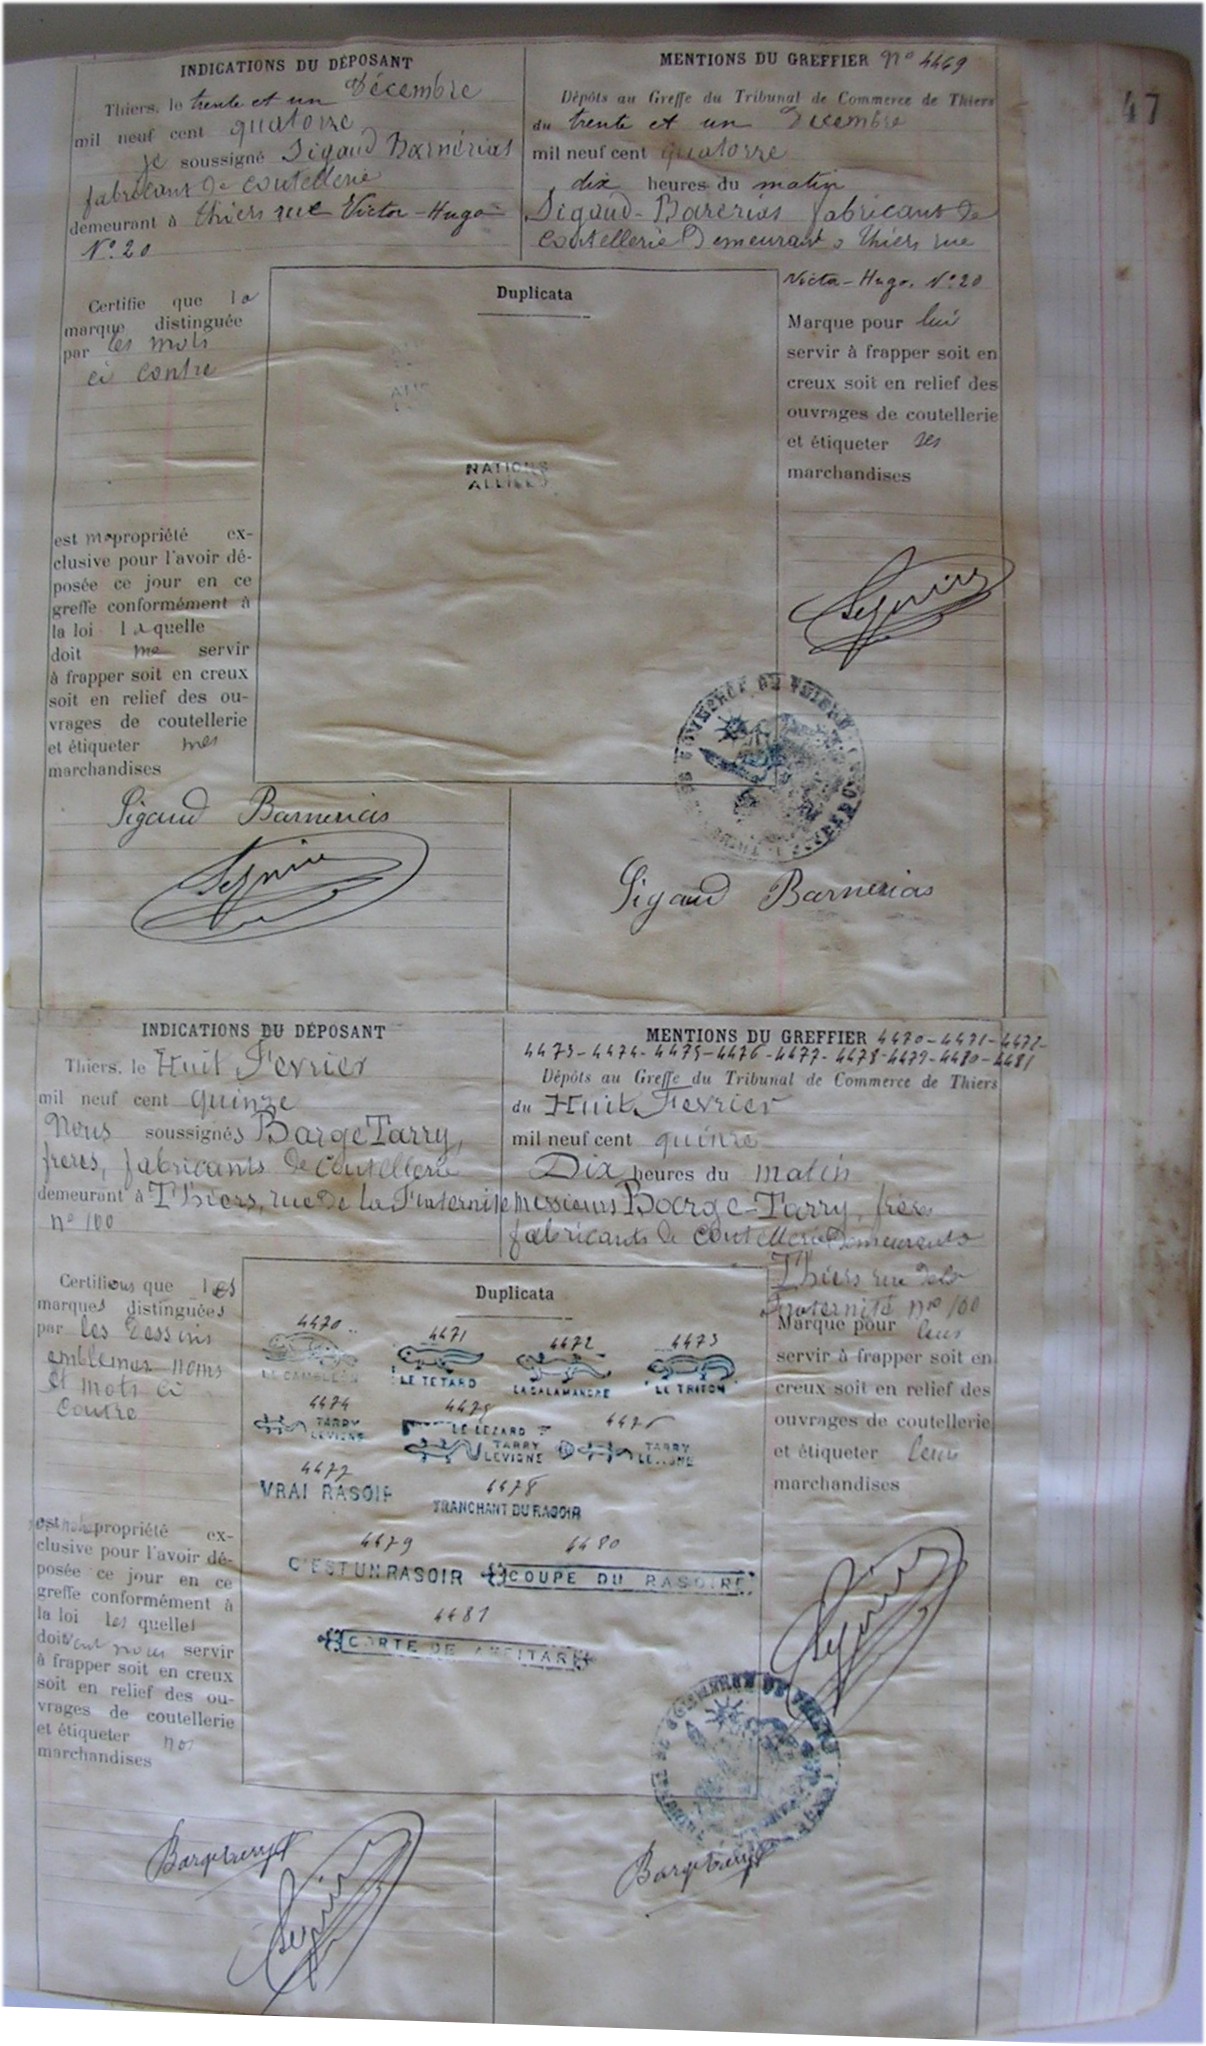 47
INDICATIONS DU DÉPOSANT
Thiers, le trente et un Décembre
mil neuf cent quatorze
je soussigné Sigaud Barnérias
fabricant de coutellerie
demeurant à Thiers rue Victor-Hugo
N° 20
MENTIONS DU GREFFIER N° 4469
Dépôts au Greffe du Tribunal de Commerce de Thiers
du trente et un Décembre
mil neuf cent quatorze
dix heures du matin
Sigaud-Barnerias fabricant de
coutellerie Demeurant à Thiers rue
Victor-Hugo. N° 20
Certifie que la
marque distinguée
par les mots
ci contre
est ma propriété ex-
clusive pour l'avoir dé-
posée ce jour en ce
greffe conformément à
la loi laquelle
doit me servir
à frapper soit en creux
soit en relief des ou-
vrages de coutellerie
et étiqueter mes
marchandises
Duplicata
NATIONS
ALLIÉES
Marque pour lui
servir à frapper soit en
creux soit en relief des
ouvrages de coutellerie
et étiqueter ses
marchandises
Sigaud Barnerias
Sigaud Barnerias
INDICATIONS DU DÉPOSANT
Thiers, le Huit Fevrier
mil neuf cent quinze
Nous soussignés Barge Tarry,
freres, fabricants de coutellerie
demeurant à Thiers, rue de la Fraternité
n° 100
MENTIONS DU GREFFIER 4470-4471-4472-
4473-4474-4475-4476-4477-4478-4479-4480-4481
Dépôts au Greffe du Tribunal de Commerce de Thiers
du Huit Fevrier
mil neuf cent quinze
Dix heures du matin
Messieurs Barge-Tarry, freres
fabricants de coutellerie Demeurants
Thiers rue de la
Fraternité n° 100
Certifions que les
marques distinguées
par les dessins
emblemes noms
et mots ci
contre
est notre propriété ex-
clusive pour l'avoir dé-
posée ce jour en ce
greffe conformément à
la loi lesquelles
doivent nous servir
à frapper soit en creux
soit en relief des ou-
vrages de coutellerie
et étiqueter nos
marchandises
Duplicata
4470 4471 4472 4473
LE CAMELEON LE TETARD LA SALAMANDRE LE TRITON
4474 4475 4476
TARRY LEVIGNE
LE LEZARD
TARRY LEVIGNE
TARRY LEVIGNE
4477 4478
VRAI RASOIR TRANCHANT DU RASOIR
4479 4480
C'EST UN RASOIR COUPE DU RASOIRE
4481
CORTE DE AFEITAR
Marque pour leur
servir à frapper soit en
creux soit en relief des
ouvrages de coutellerie
et étiqueter leurs
marchandises